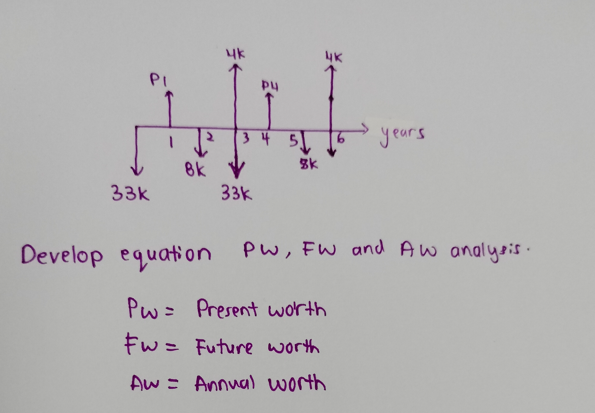 4K 4K
P1 P4
1 2 3 4 5 6 years
8K 8K
33K 33K
Develop equation PW, FW and AW analysis.
PW = Present worth
FW = Future worth
AW = Annual worth